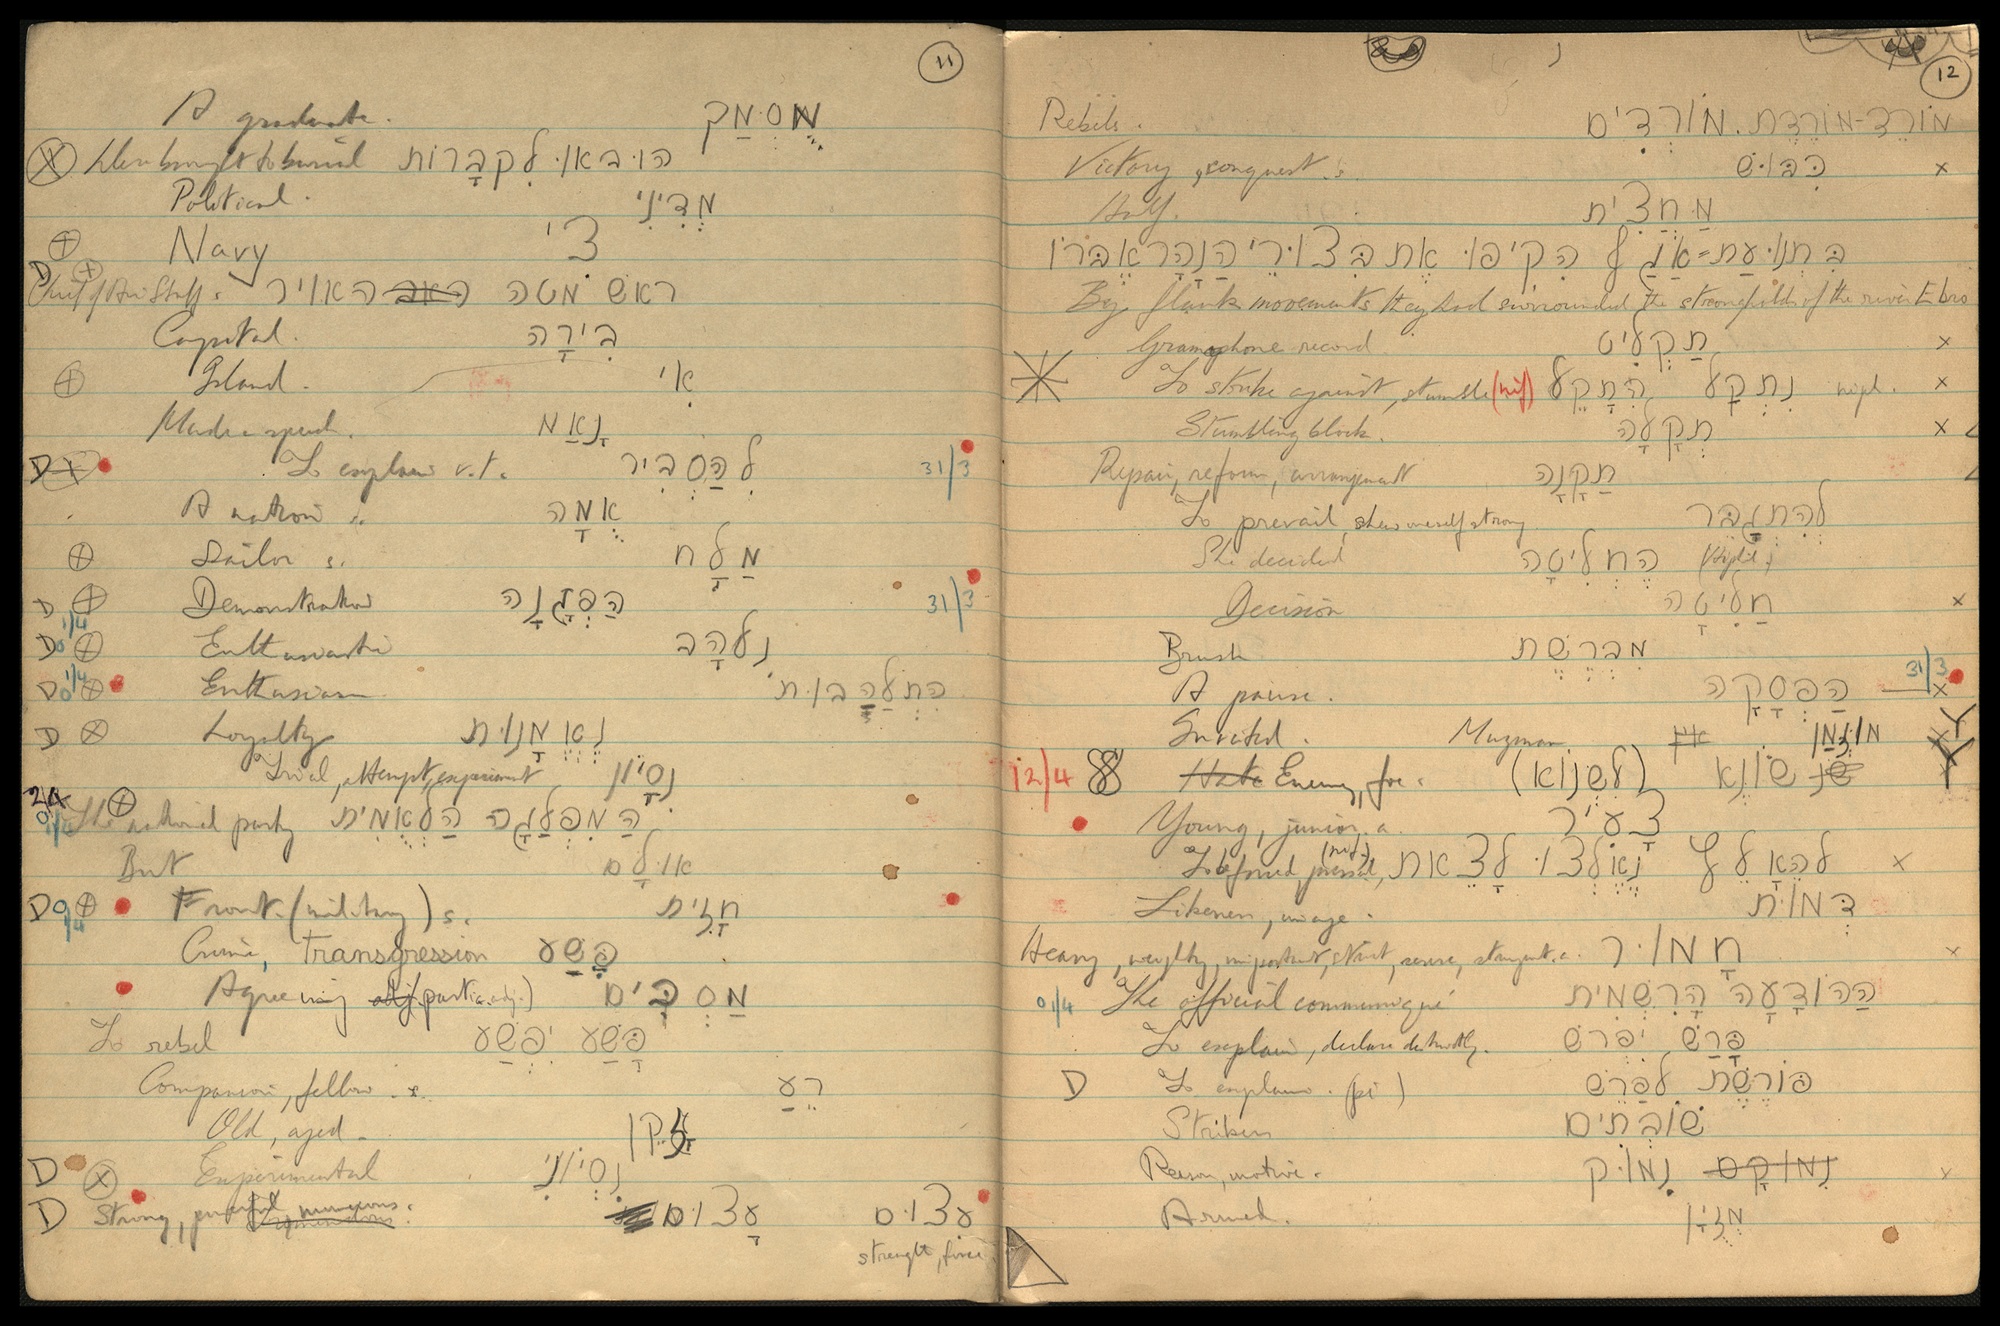 11
A graduate. מֻסְמַק
Were brought to burial הוּבְאוּ לִקְבָרוֹת
Political. מְדִינִי
Navy צִי
D
Chief of Air Staff s. ראשׁ מטה האויר
Capital. בִּירָה
Island. אִי
Made a speech. נָאַמ
D To explain v.t. לְהַסְבִּיר 31/3
A nation s. אֻמָה
Sailor s. מַלָח
D Demonstration הַפְגָנָה 31/3
1/4
D Enthusiastic נִלְהָב
1/4
D Enthusiasm הִתְלַהֲבוּת
D Loyalty נֶאֱמָנוּת
Trial, attempt, experiment נִסָיוֹן
The national party הַמִפְלָגָה הַלְאֻמִית
But אוּלָם
D Front (military) s. חָזִית
1/4
Crime, Transgression פֶּשַׁע
Agreeing adj. (partic. adj.) מַסְכִּים
To rebel פָּשַׁע יִפְשַׁע
Companion, fellow s. רֵעַ
Old, aged. זָקֵן
D Experimental נִסְיוֹנִי
D Strong, powerful, numerous. עָצוּם עֹצוּם
strength, force
12
Rebels. מוֹרֵד-מוֹרֶדֶת. מוֹרְדִים
Victory, conquest s. כִּבּוּשׁ x
Half. מַחֲצִית
בִּתְנוּעַת=אֲגַף הִקִיפוּ אֶת בִּצוּרֵי הַנָהָר אֶבְּרוֹ
By flank movements they had surrounded the strongholds of the river Ebro
Gramophone record תַקְלִיט x
To strike against, stumble (nif) הִתָקֵל נִתְקָל niph. x
Stumbling block. תְקָלָה x
Repair, reform, arrangement תַקָנָה
To prevail, shew oneself strong לְהִתְגַבֵּר
She decided הֶחְלִיטָה (Hiphil)
Decision חֲלִיטָה x
Brush מִבְרֶשֶׁת
31/3
A pause. הַפְסָקָה x
Invited. Muzman מוּזְמָן
12/4 Hate Enemy, foe. (לִשְׂנוֹא) שׂוֹנֵא
Young, junior. a. צָעִיר
To be forced, pressed, (nif.) נֶאֶלְצוּ לָצֵאת לְהֵאָלֵץ x
Likeness, image. דְמוּת
Heavy, weighty, important, strict, severe, stringent. a. חָמוּר x
1/4 The official communiqué הַהוֹדָעָה הָרִשְׁמִית
To explain, declare distinctly. פָּרַשׁ יִפְרֹשׁ
D To explain. (pi) פּוֹרֶשֶׁת לְפָרֵשׁ
Strikers שׁוֹבְתִים
Reason, motive. נִמוּק x
Armed. מְזֻיָן